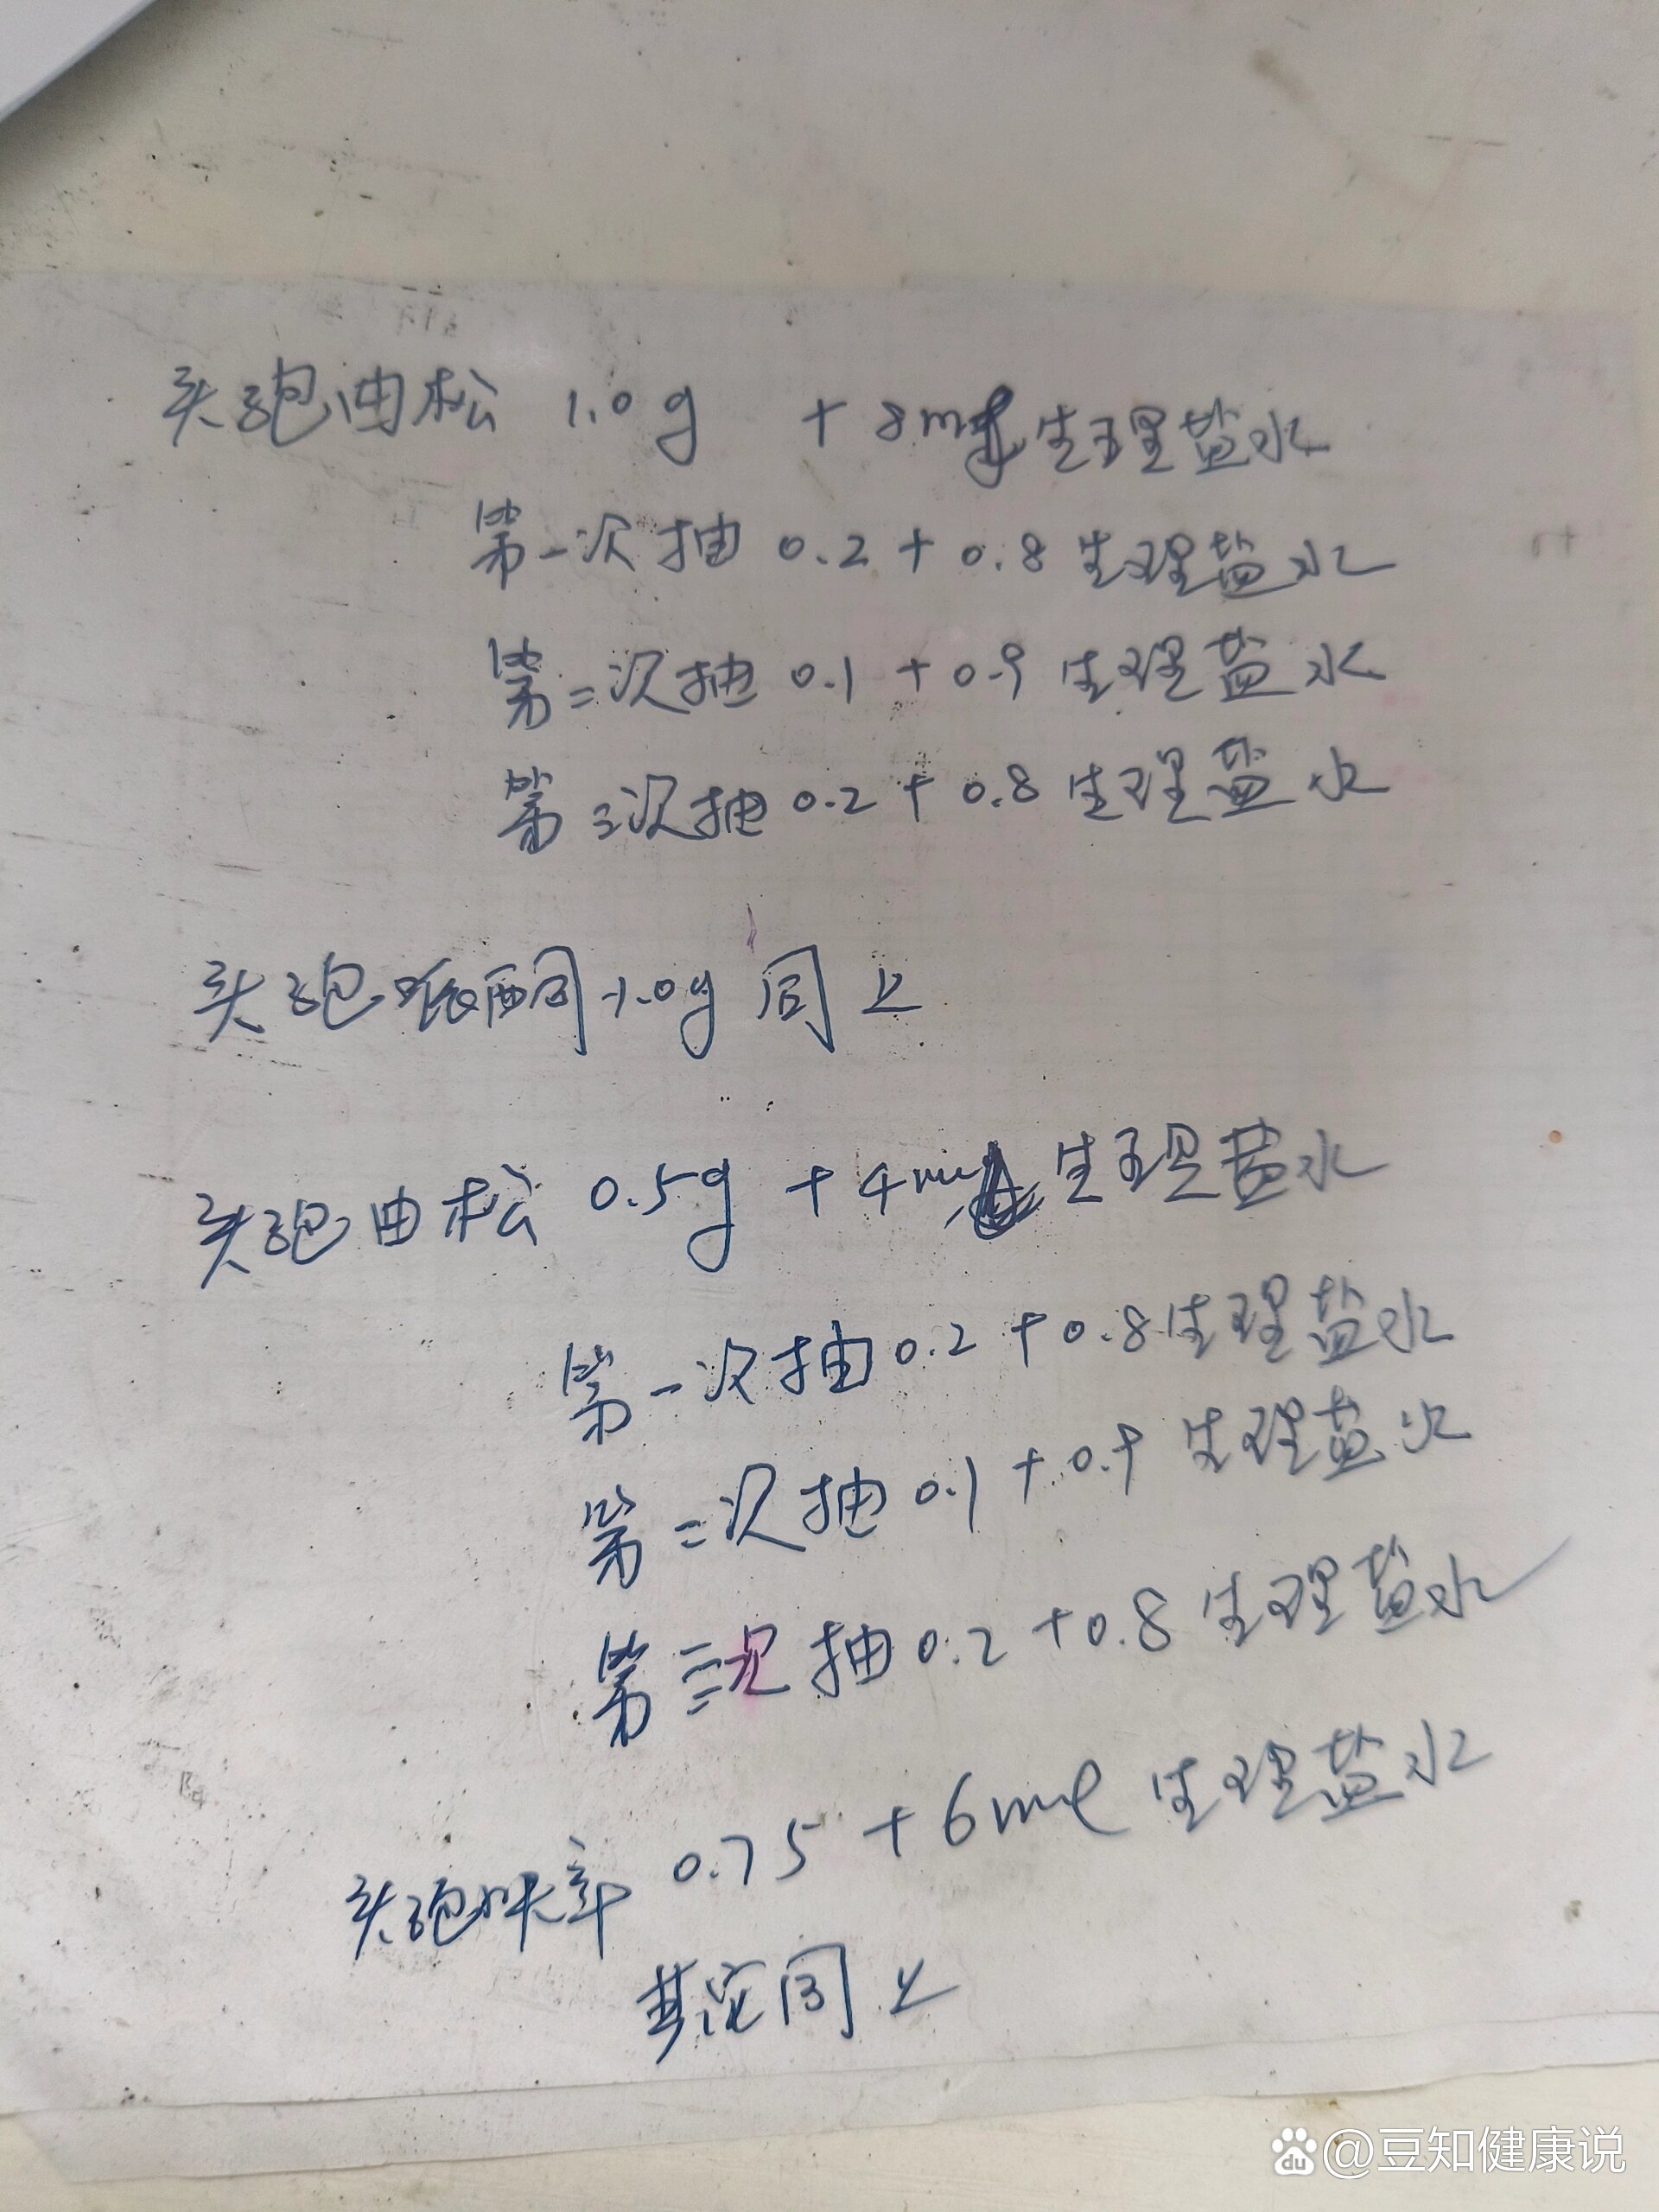 头孢曲松 1.0g + 8ml生理盐水
第一次抽 0.2 + 0.8 生理盐水
第二次抽 0.1 + 0.9 生理盐水
第三次抽 0.2 + 0.8 生理盐水
头孢哌酮 1.0g 同上
头孢曲松 0.5g + 4ml 生理盐水
第一次抽 0.2 + 0.8 生理盐水
第二次抽 0.1 + 0.9 生理盐水
第三次抽 0.2 + 0.8 生理盐水
头孢呋辛 0.75 + 6ml 生理盐水
其它同上
du @豆知健康说